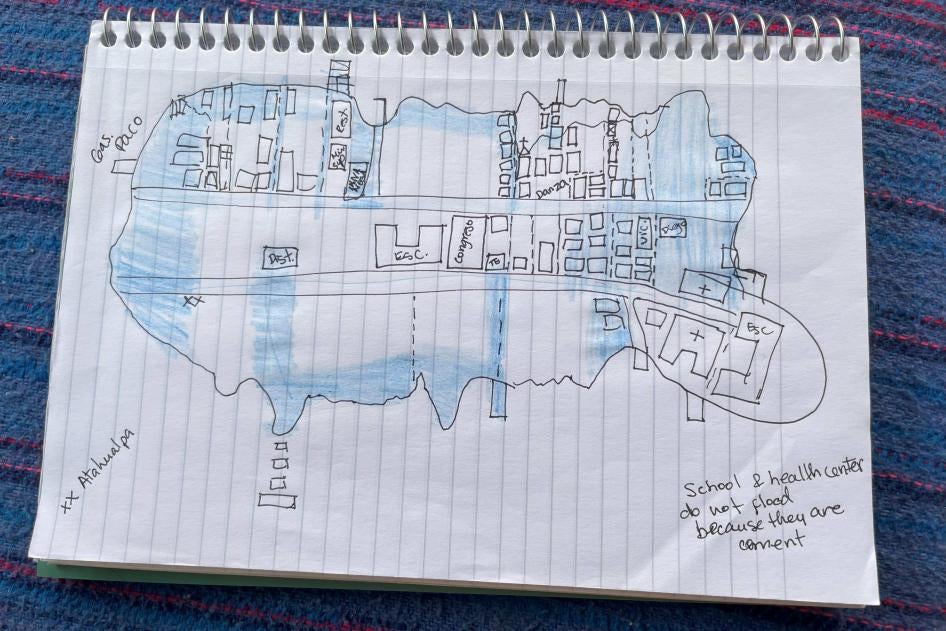 Gas.
Paco
Danza
Dist.
Esc.
Congreso
TB
Vic.
+
+
Esc
xx Atahualpa
School & health center
do not flood
because they are
cement